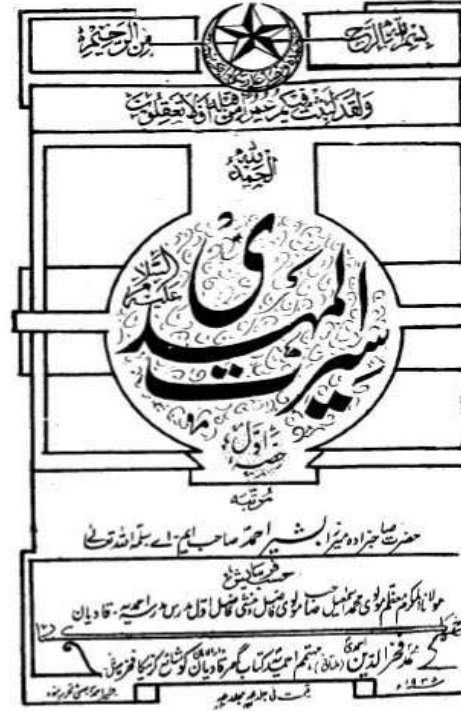 بسم اللہ الرحمن الرحیم
ولقد لبثت فیکم عمرا من قبلہ افلا تعقلون
الحمد للہ
سیرت المہدی
علیہ السلام
حصہ اول
مرتبہ
حضرت صاحبزادہ میرزا بشیر احمد صاحب ایم-اے سلمہ اللہ تعالیٰ
حسب فرمائش
مولانا المکرم معظم مولوی محمد اسمٰعیل صاحب مولوی فاضل منشی فاضل اول مدرس مدرسہ احمدیہ - قادیان
محمد فخر الدین احمدی (ملتانی) مہتمم احمدیہ کتاب گھر قادیان
۱۹۳۵ء
قیمت فی جلد